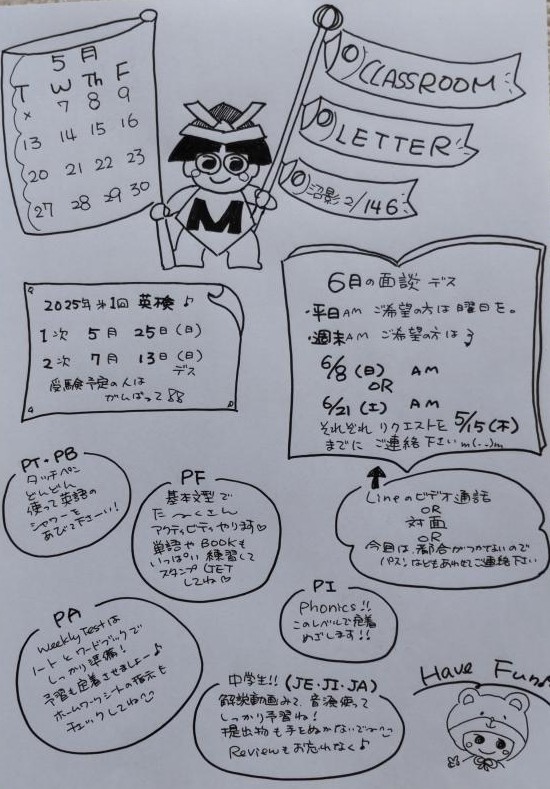 5 月
T W Th F
× 7 8 9
13 14 15 16
20 21 22 23
27 28 29 30
CLASSROOM
LETTER
沼影 2/146
M
2025年 第1回 英検♪
1次 5月 25日(日)
2次 7月 13日(日)
デス
受験予定の人は
がんばって
6月の面談 デス
・平日AM ご希望の方は曜日を。
・週末AM ご希望の方は
6/8(日) AM
OR
6/21(土) AM
それぞれ リクエストを 5/15(木)
までに ご連絡下さい m(..)m
PT・PB
タッチペン
どんどん
使って英語の
シャワーを
あびて下さーい!
PF
基本文型で
た〜くさん
アクティビティやります♡
単語や BOOKも
いっぱい 練習して
スタンプ GET
してね♡
Lineのビデオ通話
OR
対面
OR
今回は、都合がつかないので
パス、などもあわせてご連絡下さい
PI
Phonics!!
このレベルで定着
めざします!!
PA
Weekly Testは
ノートとワードブックで
しっかり準備!
予習も定着させましょー♪
ホームワークシートの指示も
チェックしてね
中学生!! (JE・JI・JA)
解説動画みて、音源使って
しっかり予習ね!
提出物も手をぬかないで〜
Reviewもお忘れなく♪
Have Fun♪